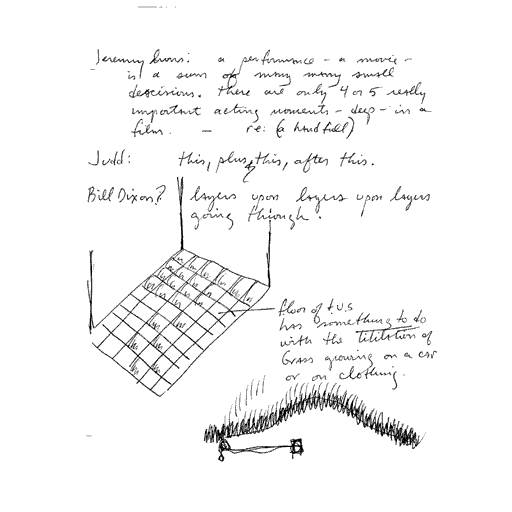 Jeremy Irons: a performance - a movie -
is a sum of many many small
descisions. there are only 4 or 5 really
important acting moments - deep - in a
film. - re: (a handfull)
Judd: this, plus this, after this.
Bill Dixon? layers upon layers upon layers
going through.
floor of t.v.s
has something to do
with the titilation of
Grass growing on a car
or on clothing.